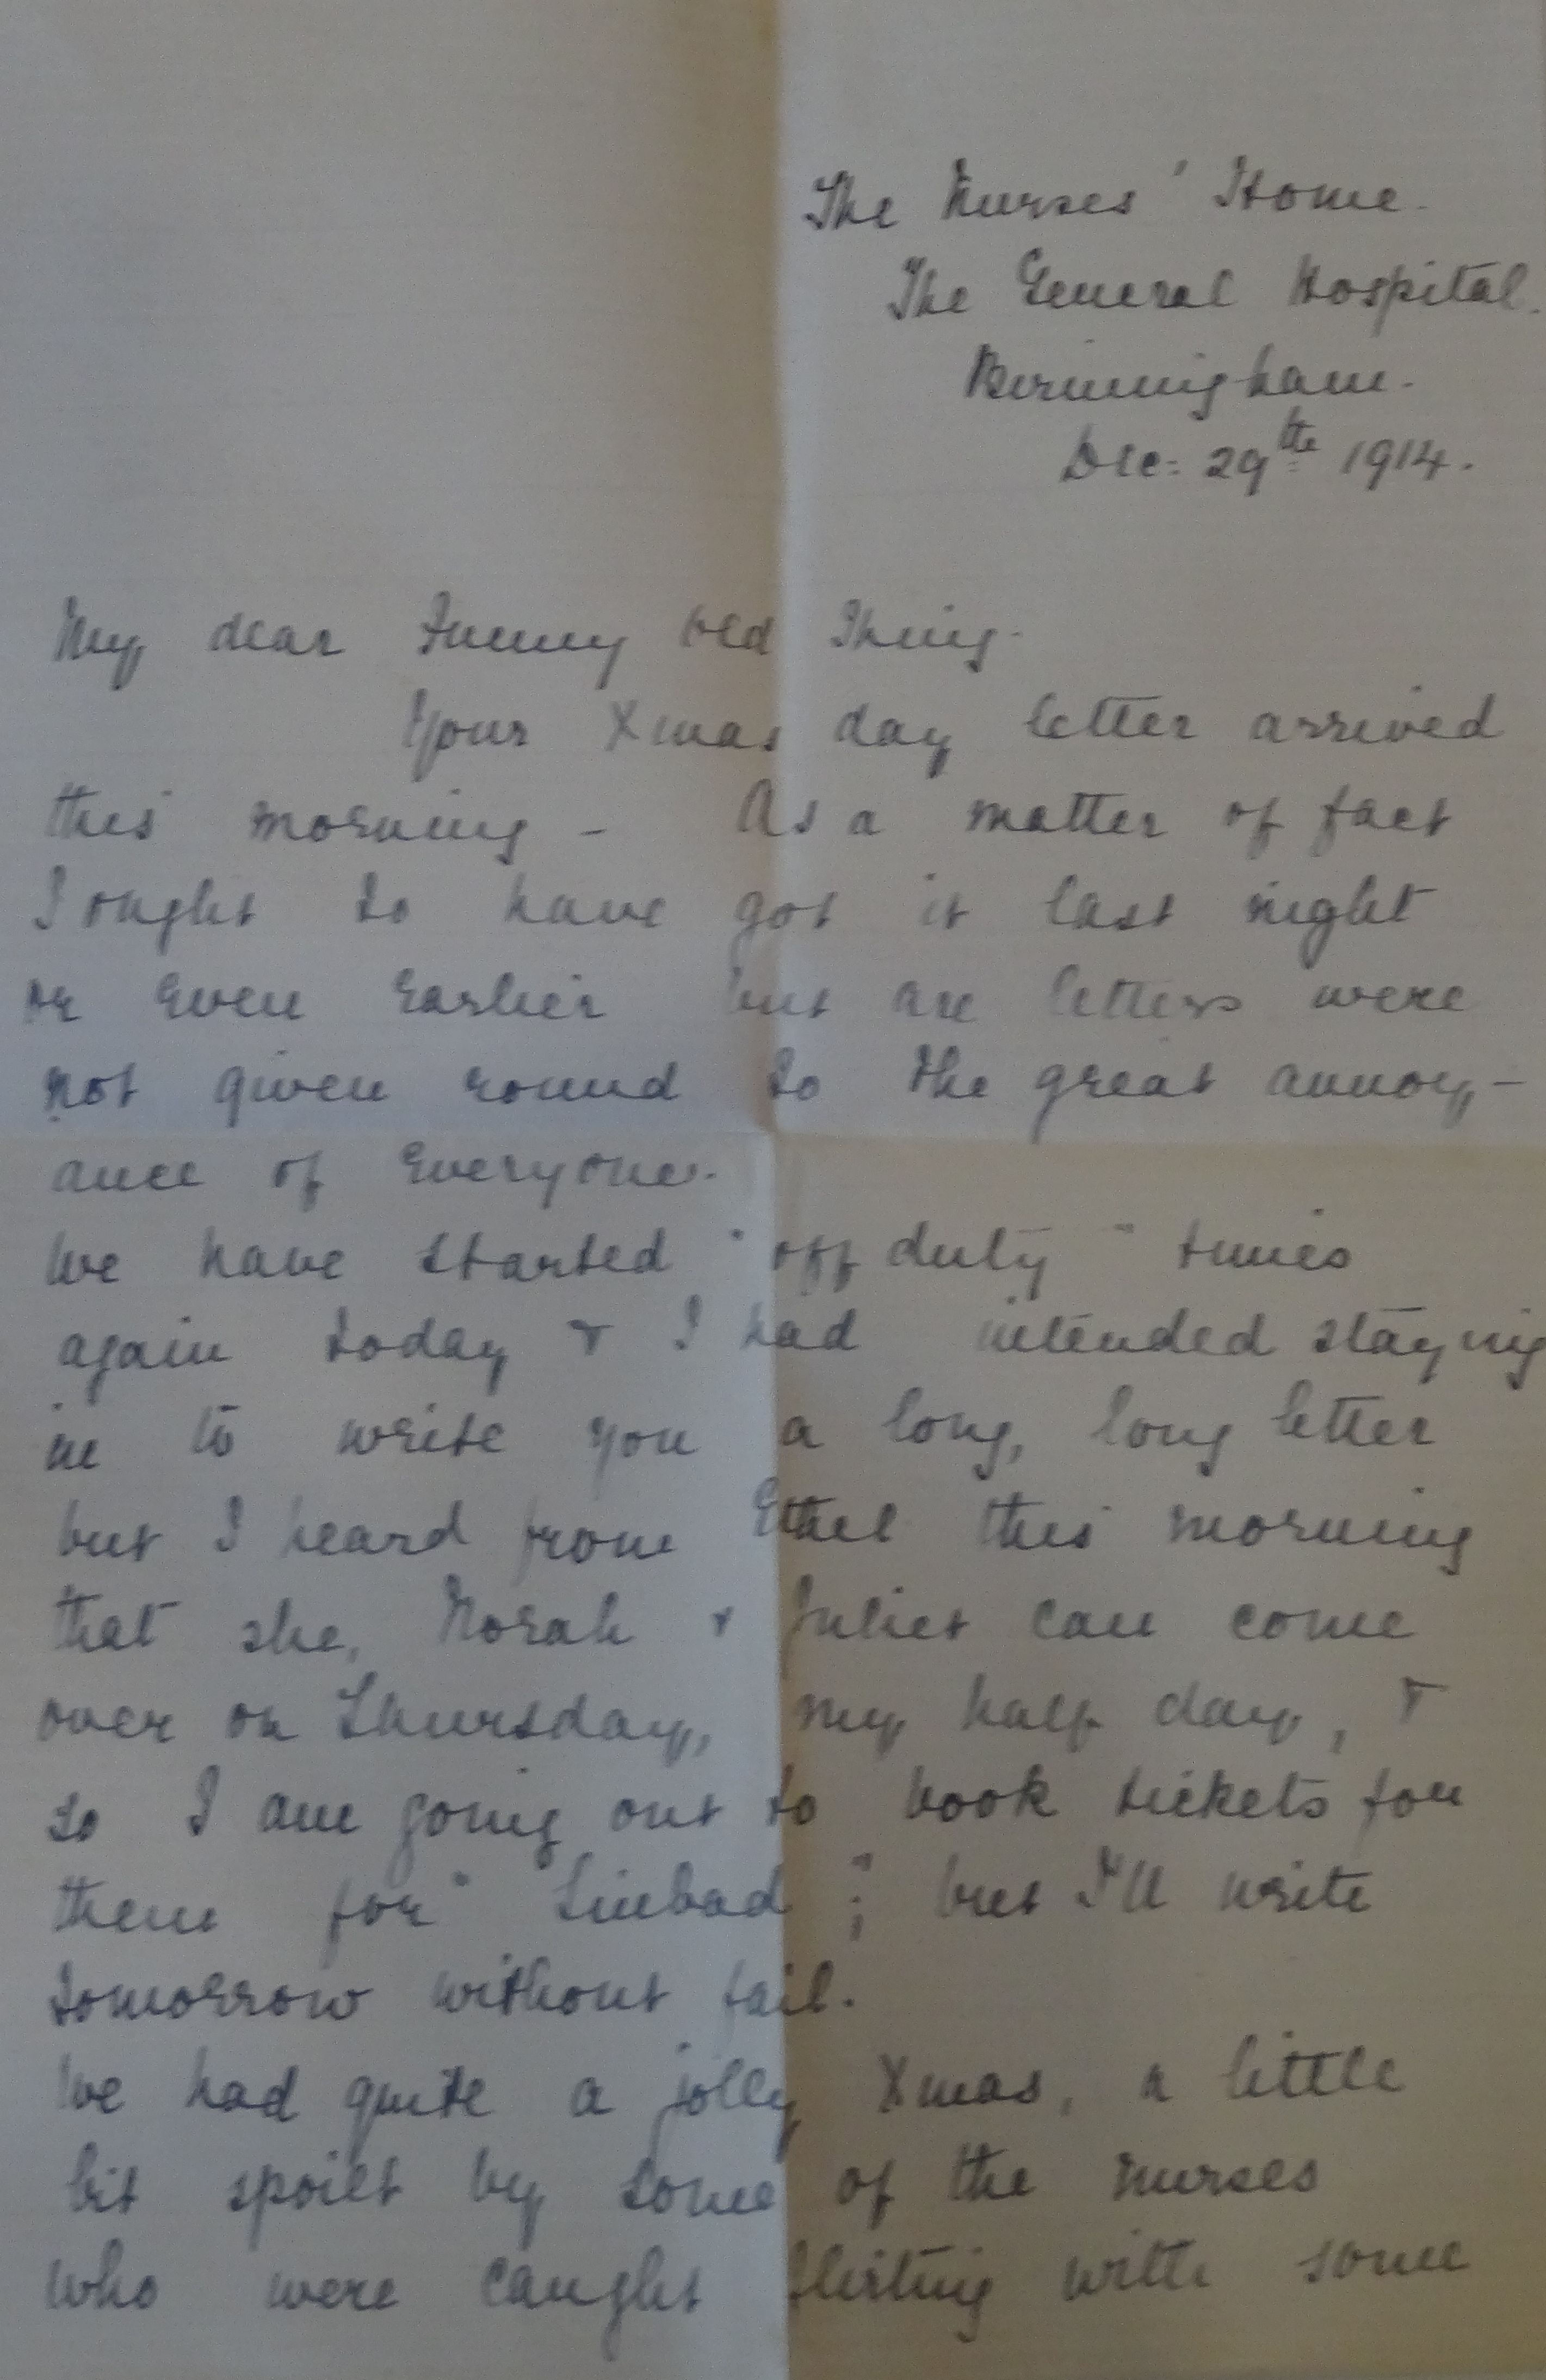 The Nurses' Home.
The General Hospital.
Birmingham.
Dec: 29th 1914.
My dear Funny Old Thing.
Your Xmas day letter arrived
this morning - As a matter of fact
I ought to have got it last night
or even earlier but all letters were
not given round to the great annoy-
ance of everyone.
We have started "off duty" times
again today & I had intended staying
in to write you a long, long letter
but I heard from Ethel this morning
that she, Norah & Juliet can come
over on Thursday, my half day, &
so I am going out to book tickets for
them for "Sinbad"; but I'll write
tomorrow without fail.
We had quite a jolly Xmas, a little
bit spoilt by some of the nurses
who were caught flirting with some